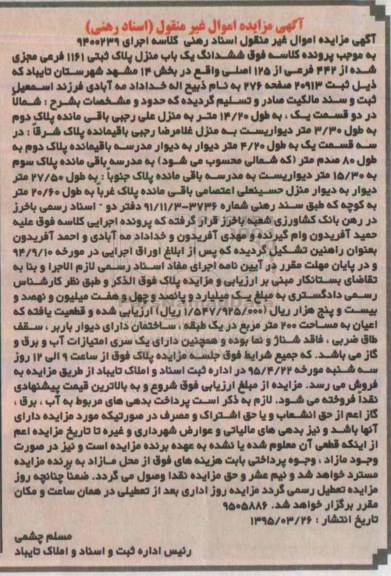 آگهی مزایده اموال غیر منقول (اسناد رهنی)
آگهی مزایده اموال غیر منقول اسناد رهنی کلاسه اجرای ۹۴۰۰۲۳۹
به موجب پرونده کلاسه فوق ششدانگ یک باب منزل پلاک ثبتی ۱۱۶۱ فرعی مجزی
شده از ۴۴۲ فرعی از ۱۲۵ اصلی واقع در بخش ۱۴ مشهد شهرستان تایباد که
ذیل ثبت ۲۰۹۱۳ صفحه ۲۷۶ به نام ذبیح اله خداداد مه آبادی فرزند اسمعیل
ثبت و سند مالکیت صادر و تسلیم گردیده که حدود و مشخصات بشرح : شمالاً
در دو قسمت یک ، به طول ۱۴/۲۰ متر به منزل علی رجبی باقی مانده پلاک دوم
به طول ۳/۳۰ متر دیواریست به منزل غلامرضا رجبی باقیمانده پلاک شرقاً : در
سه قسمت یک به طول ۴/۲۰ متر دیوار به دیوار مدرسه باقیمانده پلاک دوم به
طول ۸۰ صدم متر (که شمالی محسوب می شود) به مدرسه باقی مانده پلاک سوم
به ۱۵/۳۰ متر دیواریست به مدرسه باقی مانده پلاک جنوباً : به طول ۲۷/۵۰ متر
دیوار به دیوار منزل حسینعلی اعتصامی باقی مانده پلاک غرباً به طول ۲۰/۶۰ متر
به کوچه که طبق سند رهنی شماره ۳۷۳۶-۹۱/۱۱/۳ دفتر دو - اسناد رسمی باخرز
در رهن بانک کشاورزی شعبه باخرز قرار گرفته که پرونده اجرایی کلاسه فوق علیه
حمید آفریدون وام گیرنده و مهدی آفریدون و خداداد مه آبادی و احمد آفریدون
بعنوان راهنین تشکیل گردیده که پس از ابلاغ اوراق اجرایی در مورخه ۹۴/۹/۱۰
و در پایان مهلت مقرر در آیین نامه اجرای مفاد اسناد رسمی لازم الاجرا و بنا به
تقاضای بستانکار مبنی بر ارزیابی و مزایده پلاک فوق الذکر و طبق نظر کارشناس
رسمی دادگستری به مبلغ یک میلیارد و پانصد و چهل و هفت میلیون و نهصد و
بیست و پنج هزار ریال (۱/۵۴۷/۹۲۵/۰۰۰ ریال) ارزیابی شده و قطعیت یافته که
اعیان به مساحت ۲۰۰ متر مربع در یک طبقه ، ساختمان دارای دیوار باربر ، سقف
طاق ضربی ، فاقد شناژ و نما بوده و همچنین دارای یک سری امتیازات آب و برق و
گاز می باشد. که جمیع شرایط فوق جلسه مزایده پلاک فوق از ساعت ۹ الی ۱۲ روز
سه شنبه مورخه ۹۵/۴/۲۲ در اداره ثبت اسناد و املاک تایباد از طریق مزایده به
فروش می رسد. مزایده از مبلغ ارزیابی فوق شروع و به بالاترین قیمت پیشنهادی
نقداً فروخته می شود. لازم به ذکر است پرداخت بدهی های مربوط به آب ، برق ،
گاز اعم از حق انشعاب و یا حق اشتراک و مصرف در صورتیکه مورد مزایده دارای
آنها باشد و نیز بدهی های مالیاتی و عوارض شهرداری و غیره تا تاریخ مزایده اعم
از اینکه قطعی آن معلوم شده یا نشده به عهده برنده مزایده است و نیز در صورت
وجود مازاد ، وجوه پرداختی بابت هزینه های فوق از محل مازاد به برنده مزایده
مسترد خواهد شد و نیم عشر و حق مزایده نقدا وصول می گردد. ضمنا چنانچه روز
مزایده تعطیل رسمی گردد مزایده روز اداری بعد از تعطیلی در همان ساعت و مکان
مقرر برگزار خواهد شد. ۹۵۰۵۸۸۶
تاریخ انتشار : ۱۳۹۵/۰۳/۲۶
مسلم چشمی
رئیس اداره ثبت و اسناد و املاک تایباد